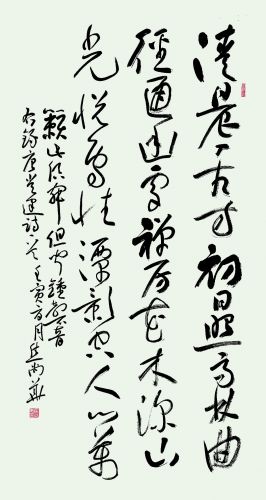 清晨入古寺初日照高林曲
徑通幽處禪房花木深山
光悅鳥性潭影空人心萬
籟此俱寂但餘鐘磬音
右錄唐常建詩一首壬寅月尚華